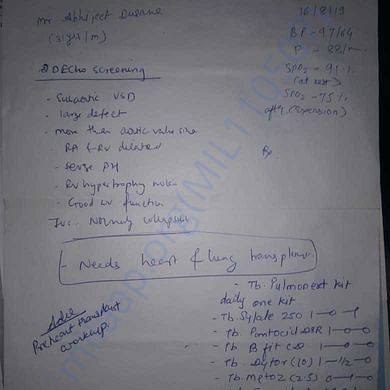 Mr Abhijeet
16/8/19
(31yrs/m)
BP - 97/64
P - 88/m
2DEcho screening
SPO2 - 91%
(at rest)
SPO2 - 75%
- Subaortic VSD
- large defect
- more then aortic valve size
- RA & RV dilated
- severe PH
- RV hypertrophy noted
- Good LV function
IVC. Normaly collapsing
- Needs heart & lung transplant
Adv
Preheart transplant
workup.
- Tb. Pulmonext kit
daily one kit
250 1-0-1
- Tb. Pantocid DSR 1-0-0
- Tb. B fit CD 1-0-0
- Tb. Dytor (10) 1-1/2-0
- Tb. Metoz (2.5)
milaap.org(MIL110595)